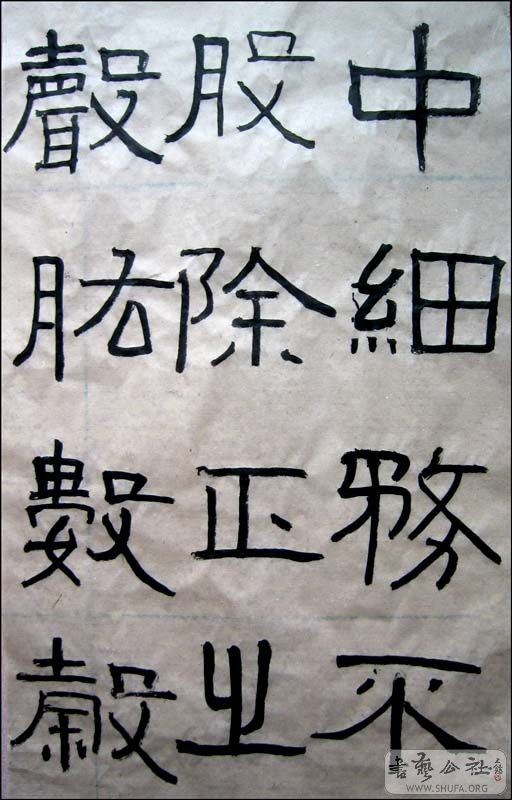 中細務不
股除正之
聲數穀
書藝公社
WWW.SHUFA.ORG